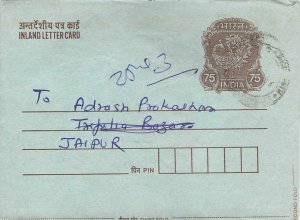 अन्तर्देशीय पत्र कार्ड
INLAND LETTER CARD
75 75
INDIA
To
Adrash Prakashan
Tripolia Bazar
JAIPUR
पिन PIN